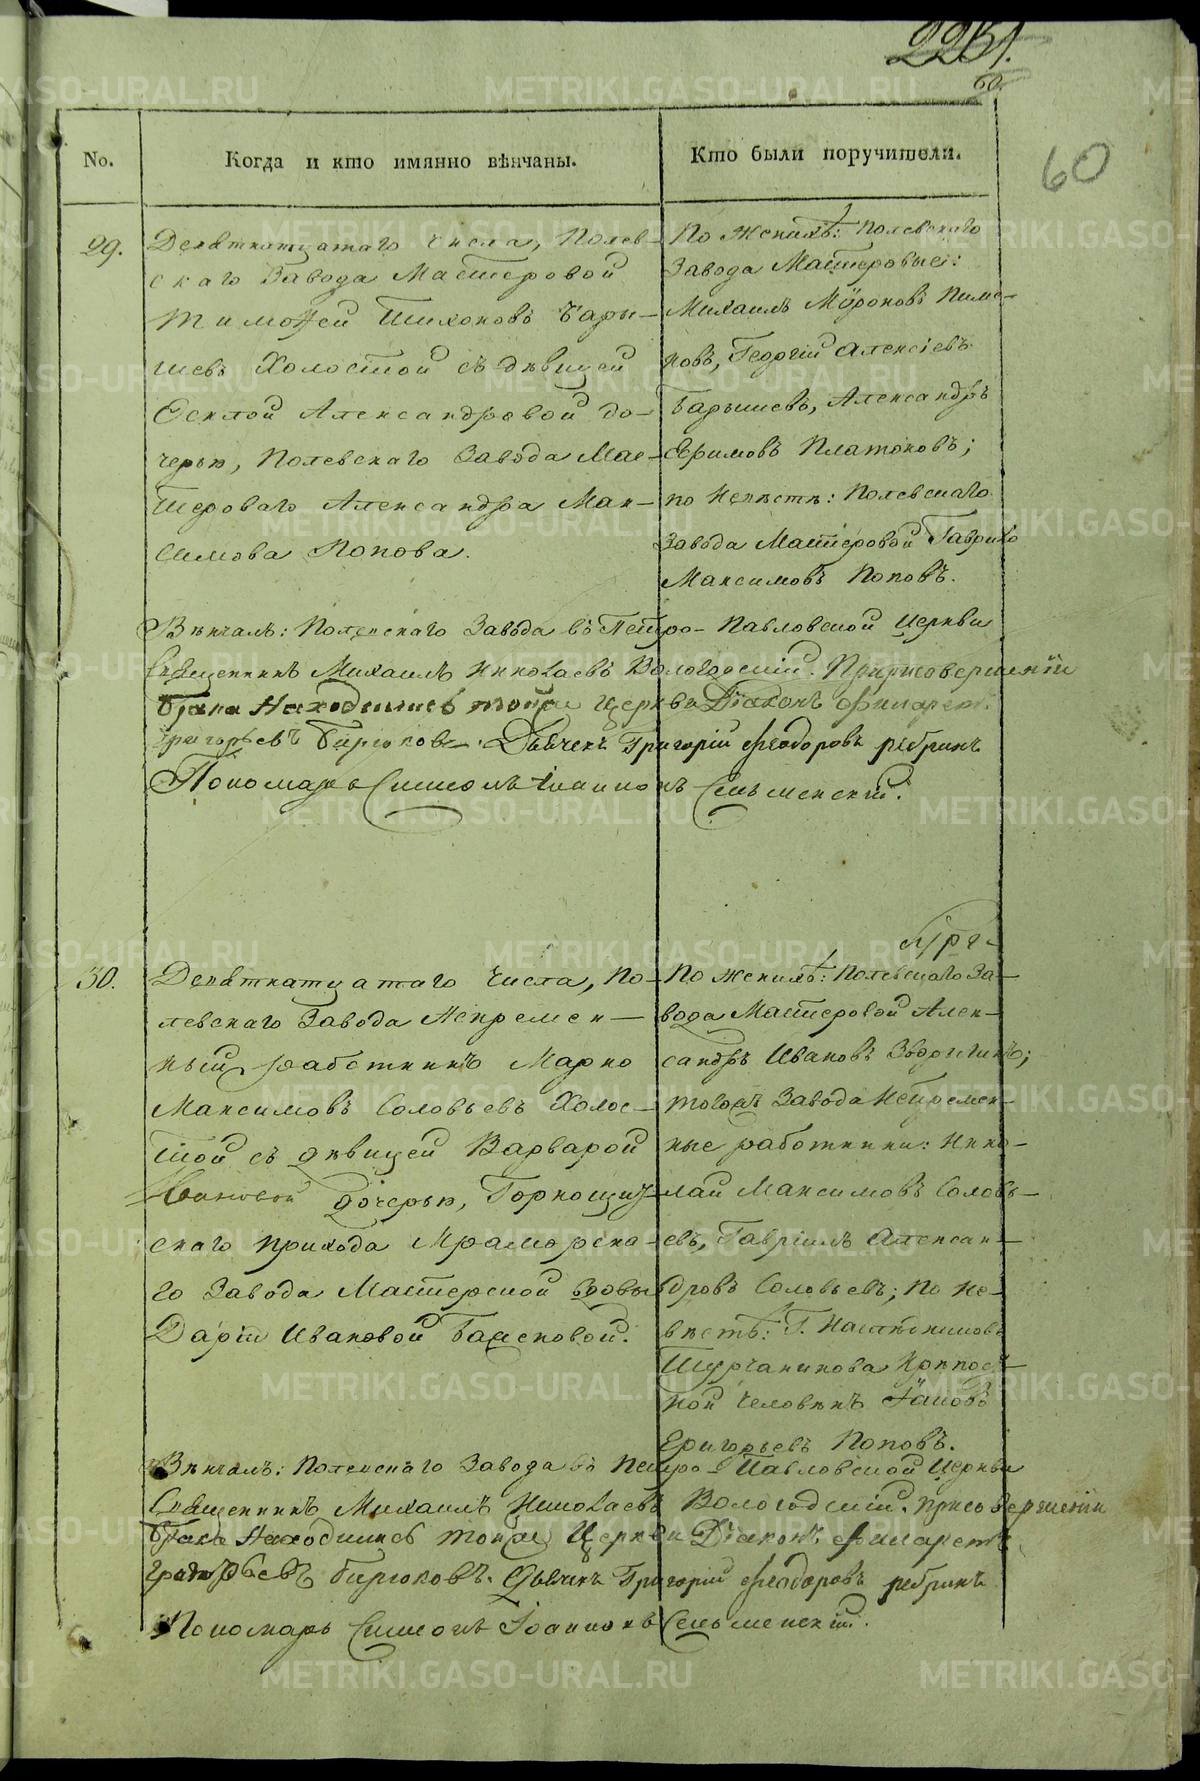 60.
60
No.
Когда и кто имянно вѣнчаны.
Кто были поручители.
29.
Девятнатцатаго числа, Полев-
скаго Завода Мастеровой
Тимофей Тихоновъ Бары-
шевъ Холостой съ дѣвицей
Феклой Александровой до-
черью, Полевскаго Завода Мас-
тероваго Александра Мак-
симова Попова.
По Женихѣ: Полевскаго
Завода Мастеровые:
Михаилъ Мѵроновъ Пиме-
новъ, Георгій Алексіевъ
Барышевъ, Александръ
Ефимовъ Платоновъ;
по Невѣстѣ: Полевскаго
Завода Мастеровой Гаврило
Максимовъ Поповъ.
Вѣнчалъ: Полевскаго Завода въ Петро-Павловской Церкви
Священникъ Михаилъ Николаевъ Вологодскій. При совершеніи
брака Находились тойже Церкви Діаконъ Филаретъ
Григорьевъ Бирюковъ. Дьячекъ Григорій Феодоровъ
Пономарь Симеонъ Іоанновъ Сельменскій.
30.
Девятнатцатаго Числа, По-
левскаго Завода Непремен-
ный работникъ Марко
Максимовъ Соловьевъ Холос-
той съ дѣвицей Варварой
Ивановой дочерью, Горнощит-
скаго прихода Мраморска-
го Завода Мастерской вдовы
Даріи Ивановой
По женихѣ: Полевскаго За-
вода Мастеровой Алек-
сандръ Ивановъ
тогожъ Завода Непремен-
ные работники: Нико-
лай Максимовъ Соловь-
евъ, Гавріилъ Алексан-
дровъ Соловьевъ; По Не-
вѣстѣ: Г. Наслѣдниковъ
Турчанинова Крепост-
ной человѣкъ Іаковъ
Григорьевъ Поповъ.
Вѣнчалъ: Полевскаго Завода въ Петро-Павловской Церкви
Священникъ Михаилъ Николаевъ Вологодскій. При совершеніи
брака Находились тойже Церкви Діаконъ Филаретъ
Григорьевъ Бирюковъ. Дьячекъ Григорій Феодоровъ
Пономарь Симеонъ Іоанновъ Сельменскій.
METRIKI.GASO-URAL.RU